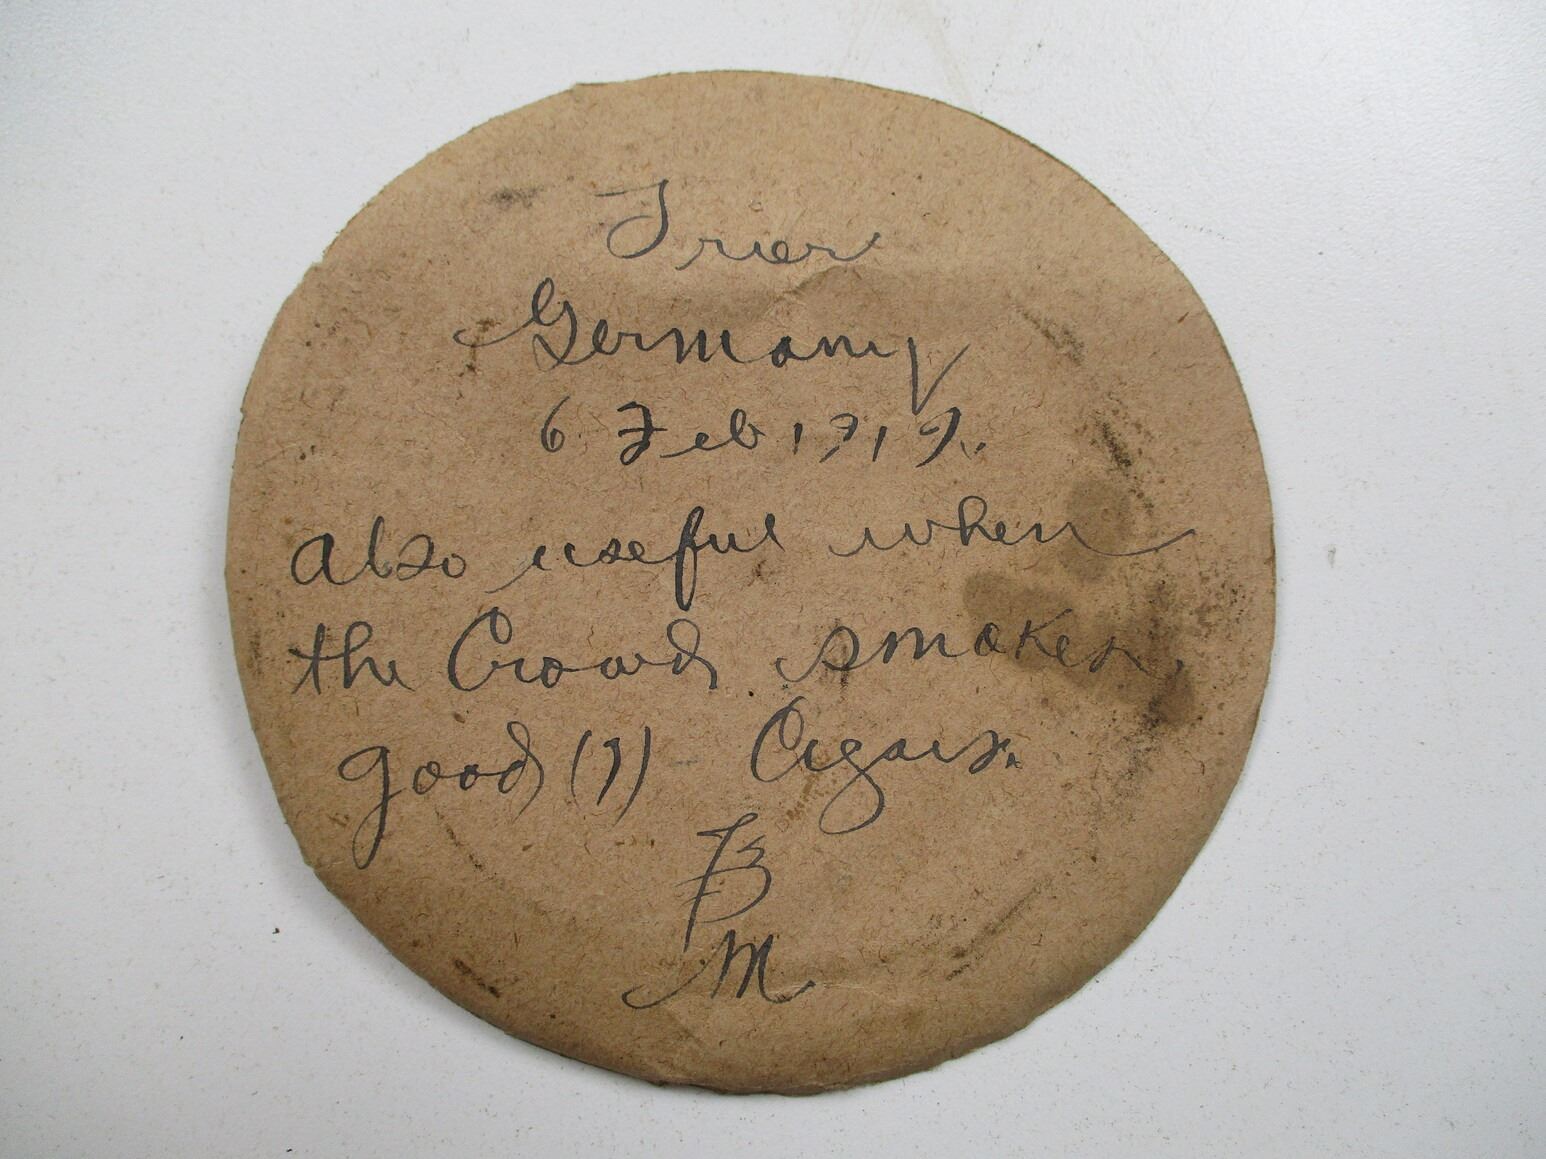 Trier
Germany
6 Feb 1919.
also useful when
the Crowd smokes
good (?) Cigars.
B
M